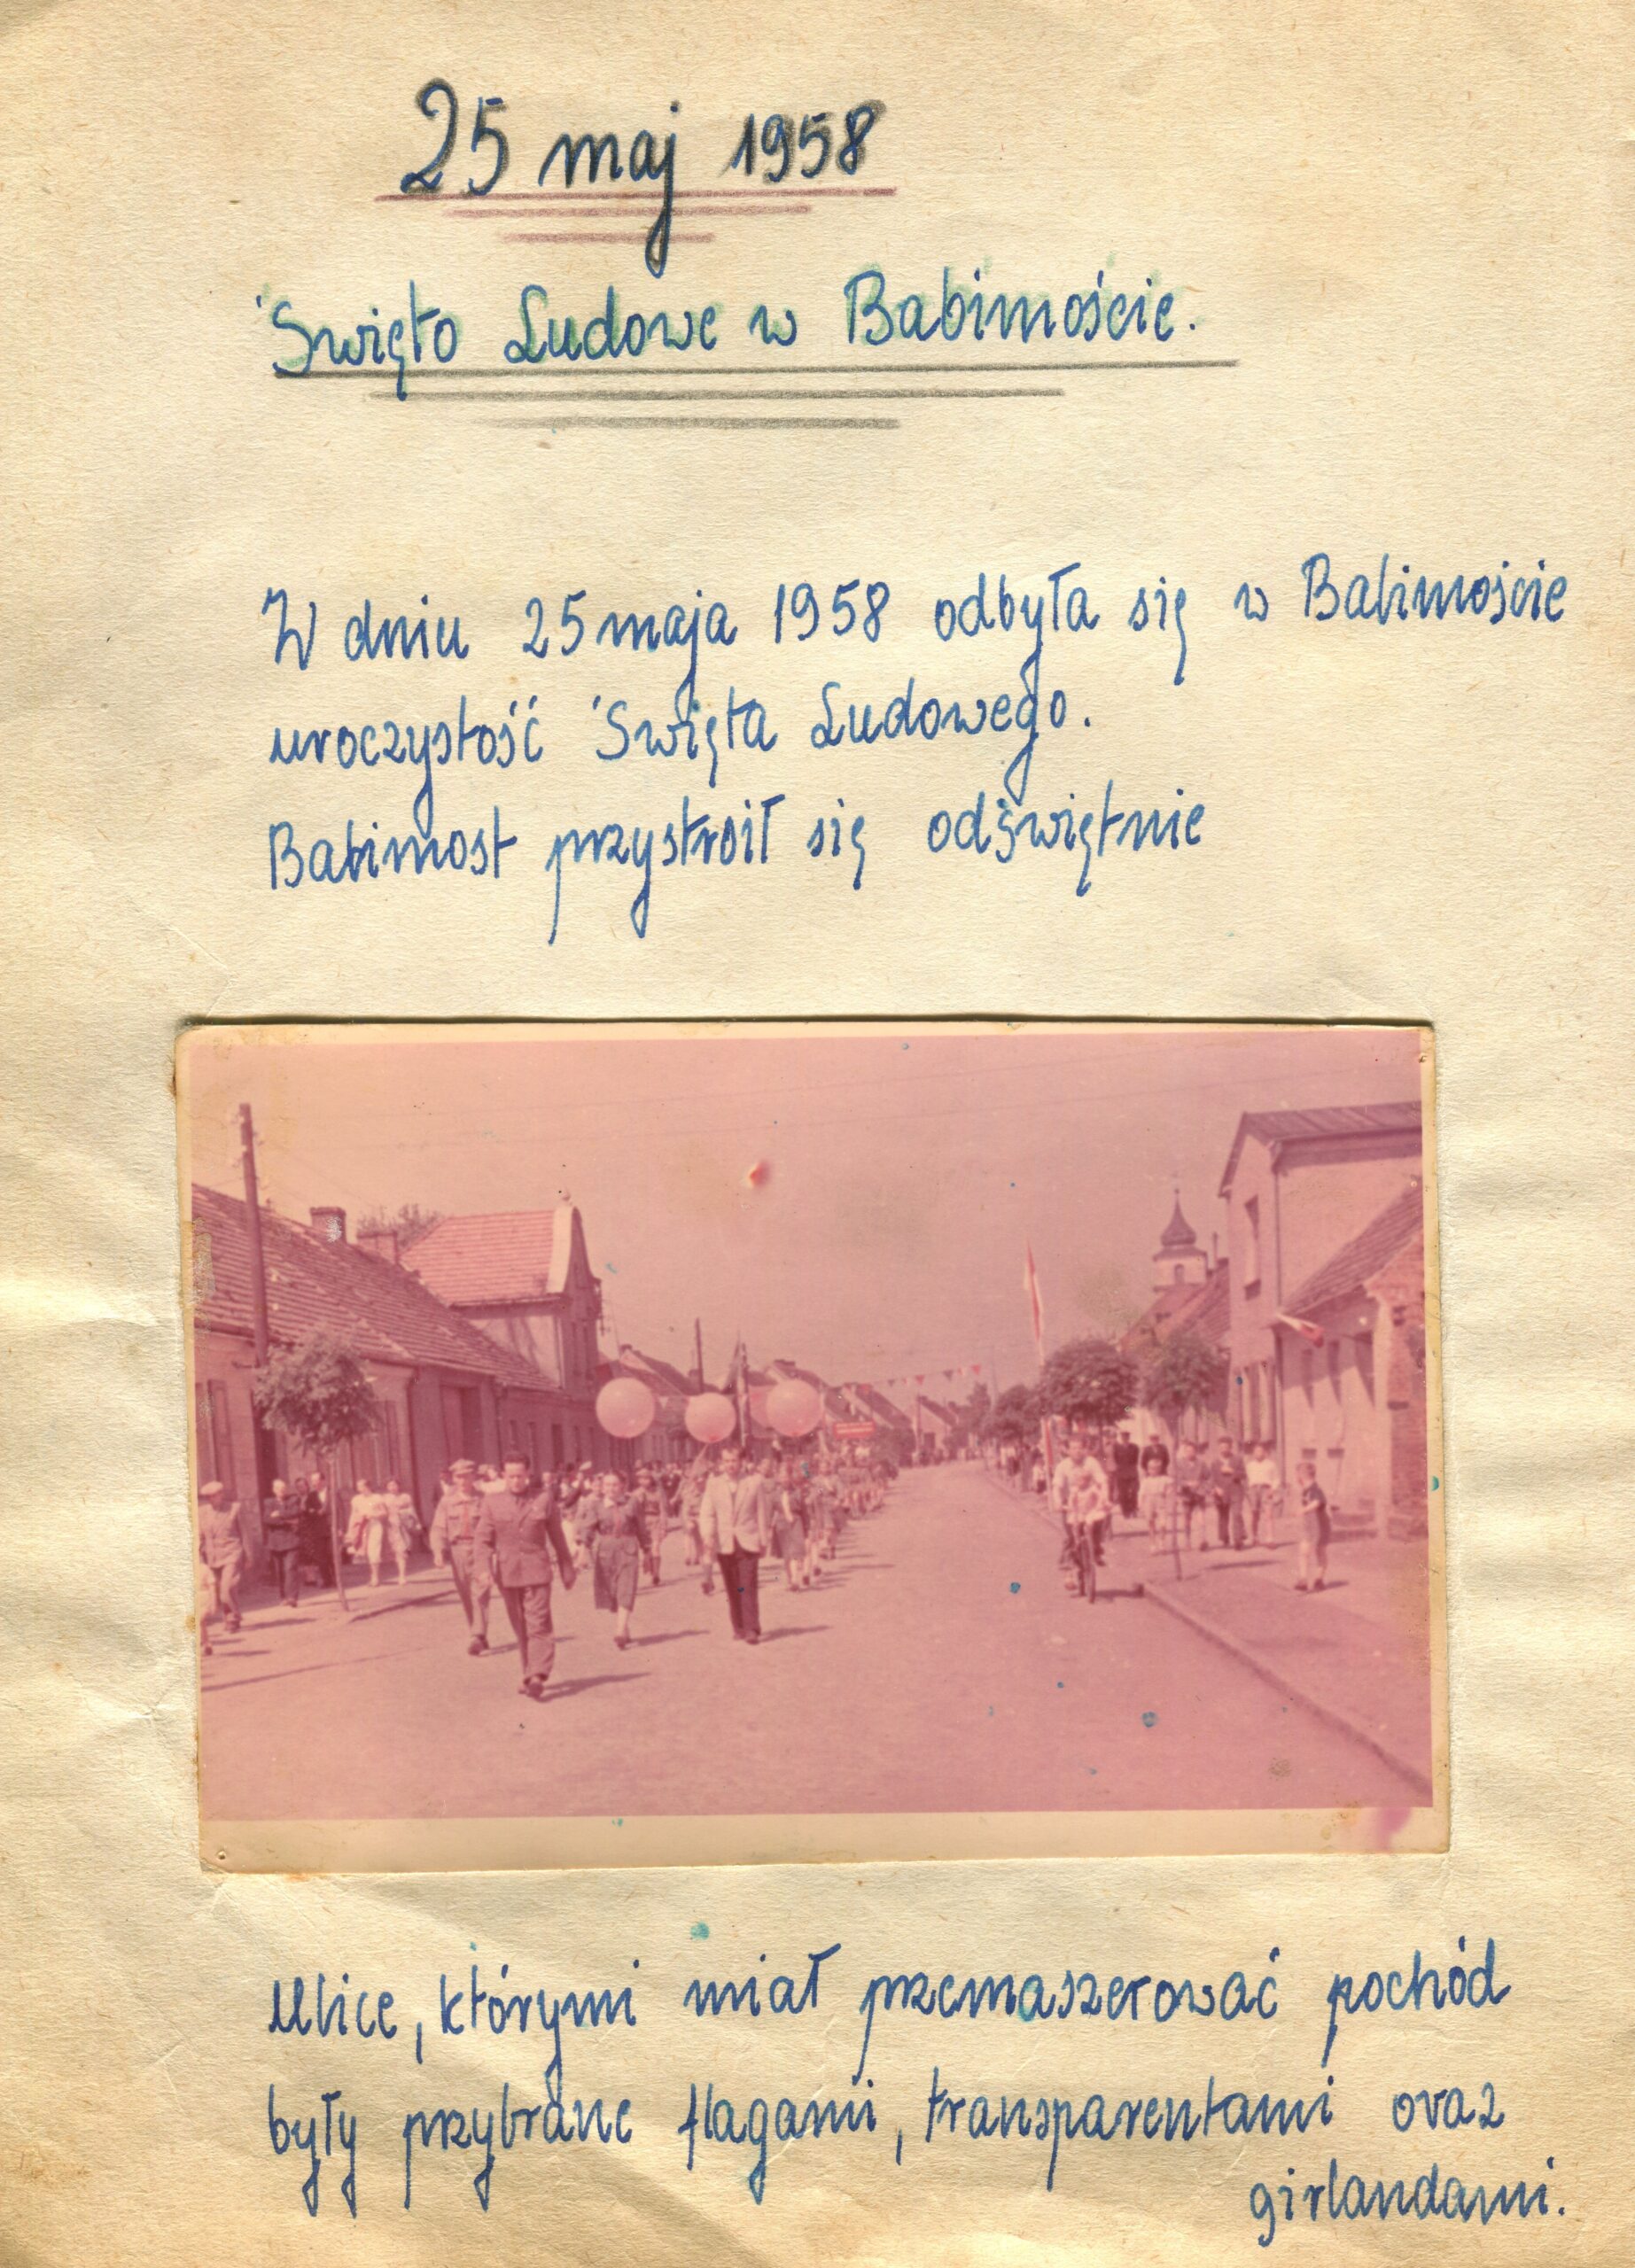 25 maj 1958
Święto Ludowe w Babimoście.
W dniu 25 maja 1958 odbyła się w Babimoście
uroczystość Święta Ludowego.
Babimost przystroił się odświętnie
Ulice, którymi miał przemaszerować pochód
były przybrane flagami, transparentami oraz
girlandami.